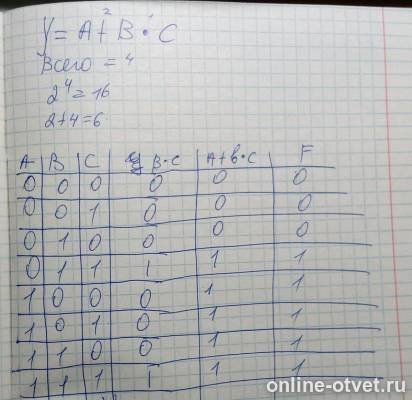 2 1
y = A + B · C
Всего = 4
2⁴ = 16
2 + 4 = 6
A B C B·C A+B·C F
0 0 0 0 0 0
0 0 1 0 0 0
0 1 0 0 0 0
0 1 1 1 1 1
1 0 0 0 1 1
1 0 1 0 1 1
1 1 0 0 1 1
1 1 1 1 1 1
online-otvet.ru